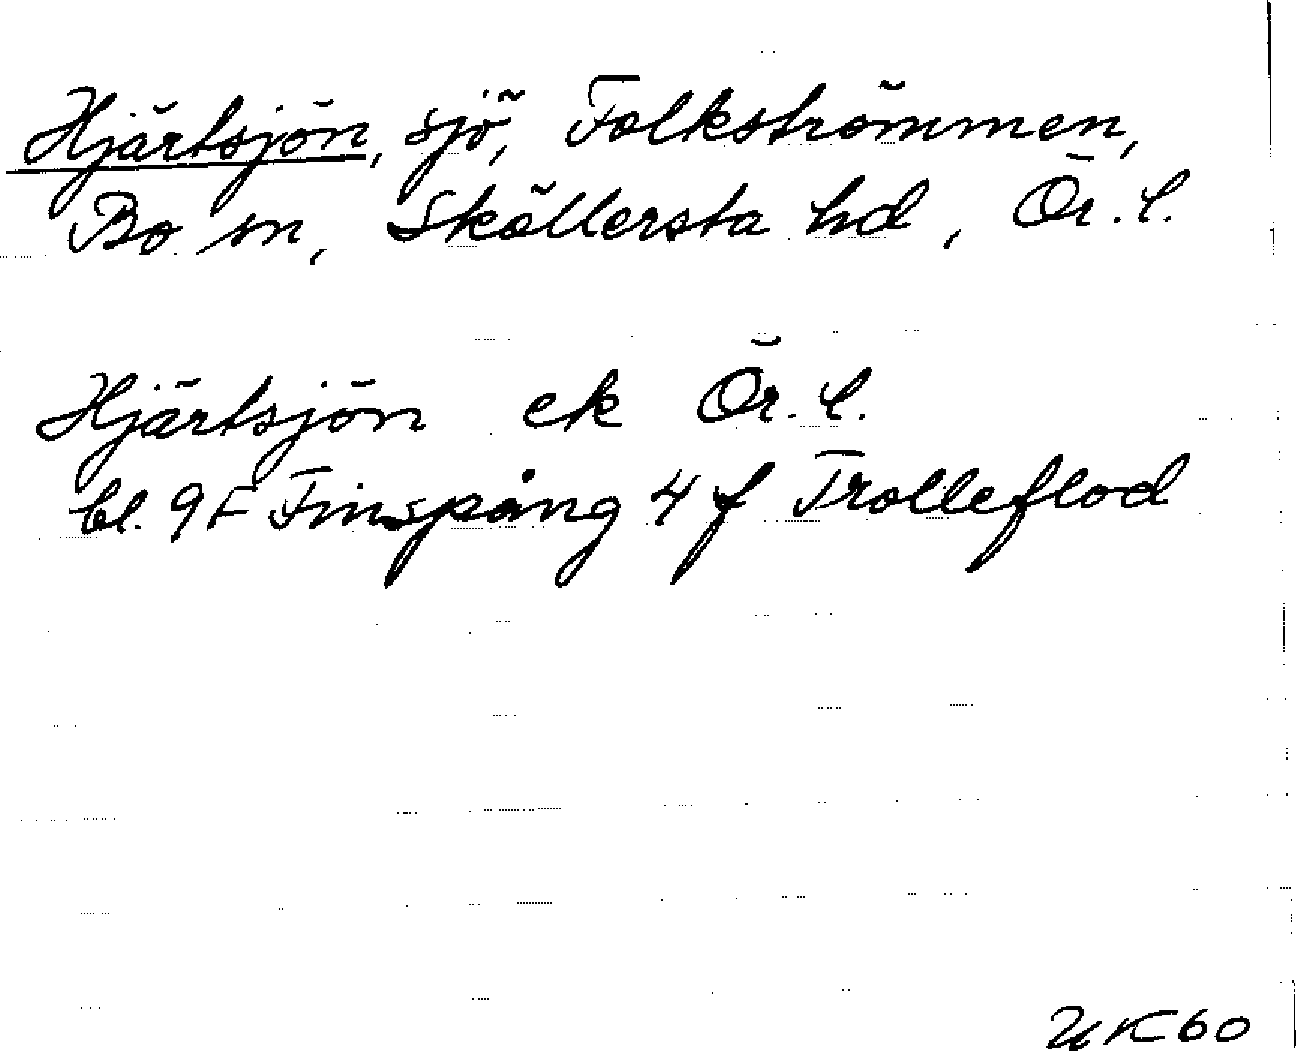 Hjärtsjön, sjö, Folkströmmen,
Bo sn, Sköllersta hd, Ör. l.
Hjärtsjön ek Ör. l.
bl. 9F Finspång 4 f Trolleflod
UK60